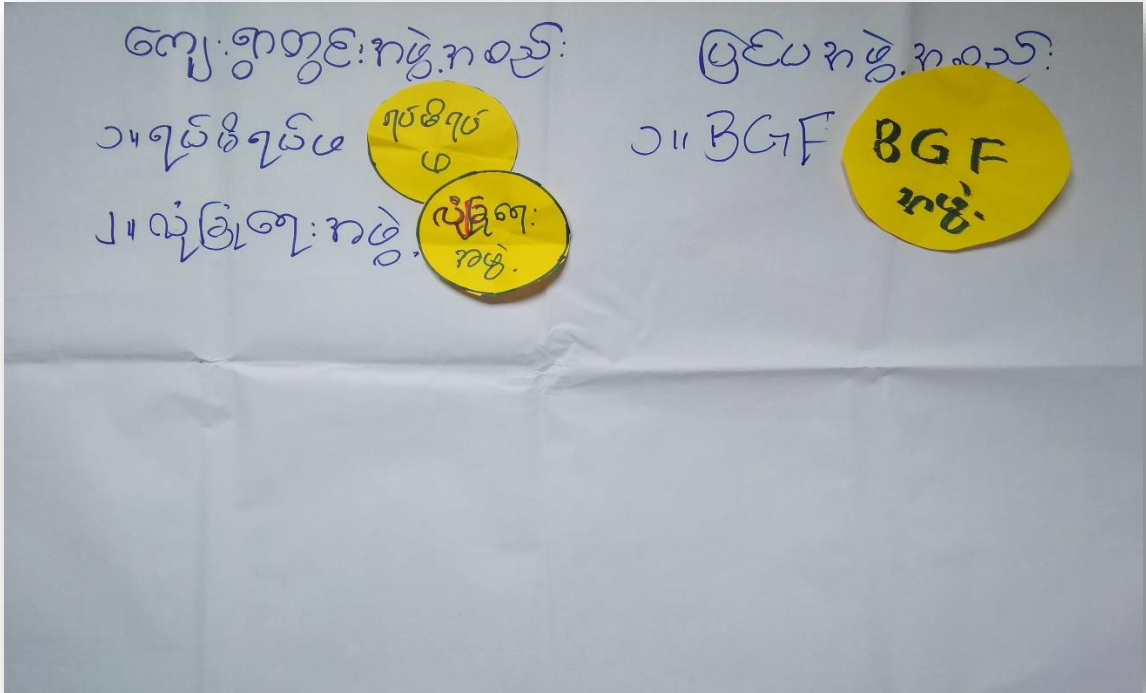 ကျေးရွာတွင်းအဖွဲ့အစည်း
၁။ ရပ်မိရပ်ဖ
ရပ်မိရပ်
ဖ
၂။ လုံခြုံရေးအဖွဲ့
လုံခြုံရေး
အဖွဲ့
ပြင်ပအဖွဲ့အစည်း
၁။ BGF
BGF
အဖွဲ့